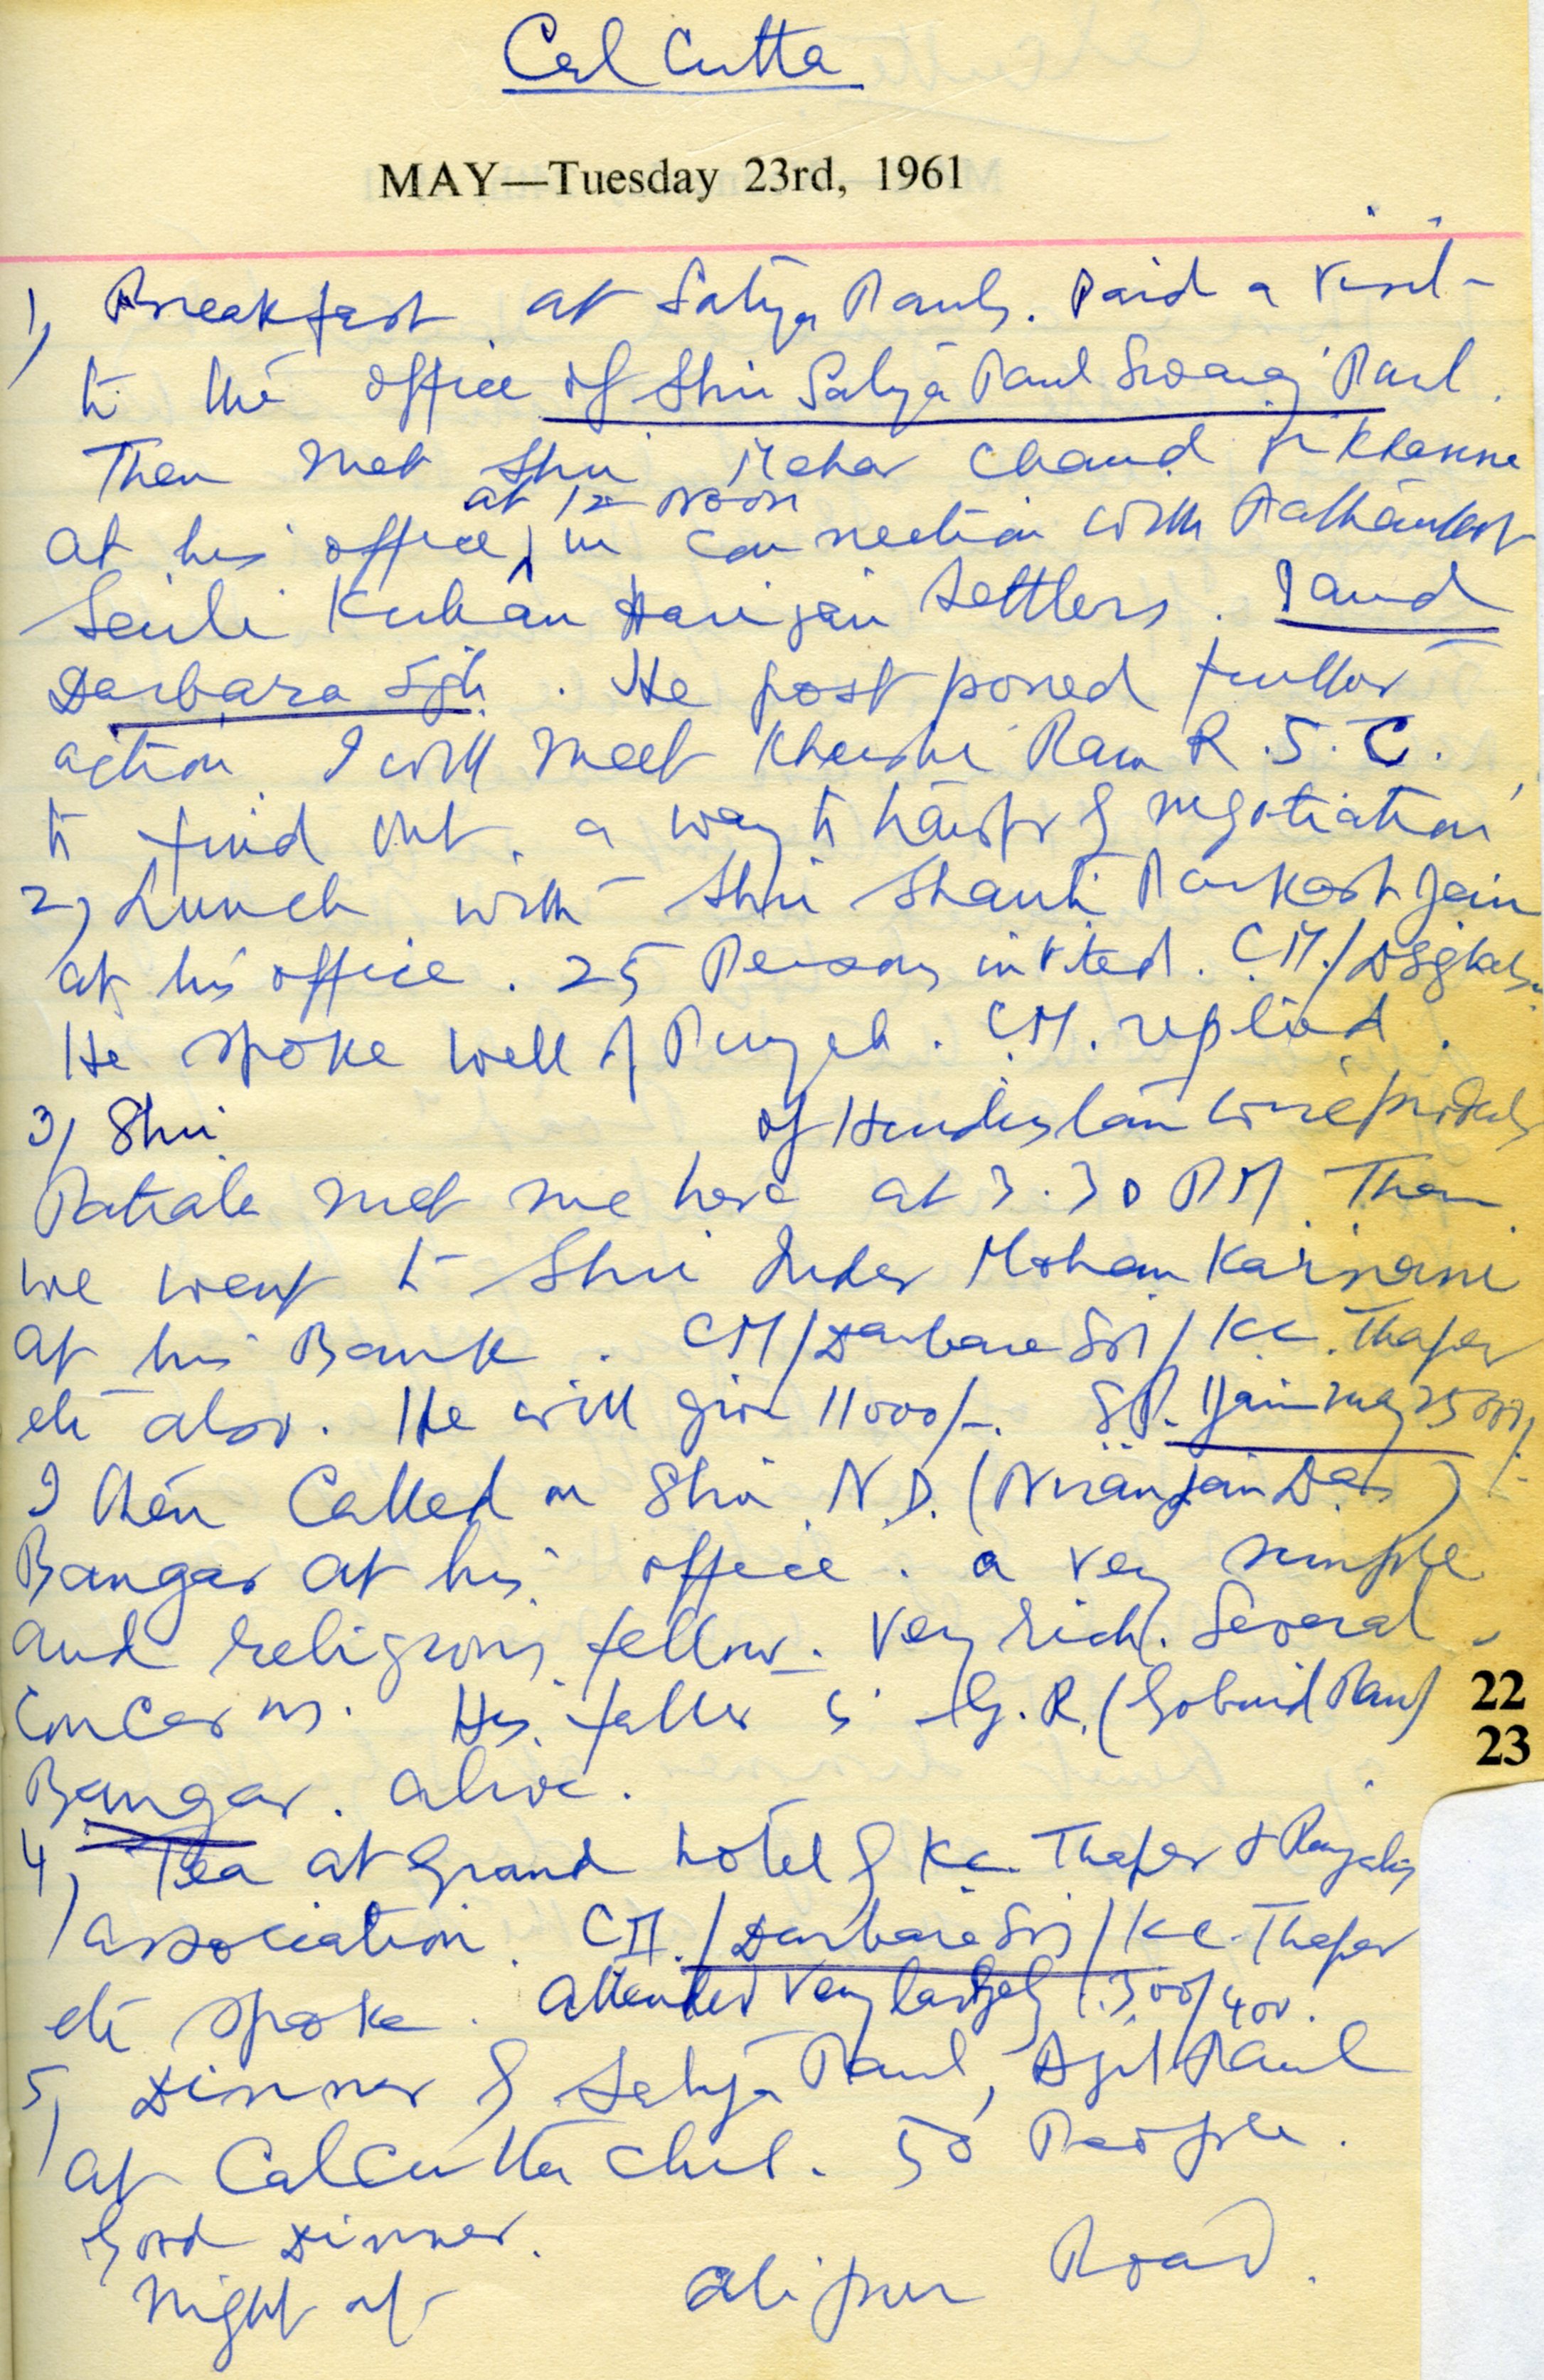 Calcutta
MAY—Tuesday 23rd, 1961
1) Breakfast at Satya Pauls. Paid a visit
to the office of Shri Satya Paul Swaraj Paul.
Then met Shri Mehar Chand Khanna
at 12 noon
at his office, in connection with Pathankot
Harijan settlers. I and
Darbara Sgh. He post poned further
action. I will meet Ram R.S.C.
to find out a way to transfer & negotiation
2) Lunch with Shri Shanti Parkash Jain
at his office. 25 Persons invited. C.M./
He spoke well of Punjab. C.M. replied.
3) Shri of Hindustan wire products
Patiala met me here at 3.30 PM. Then
we went to Shri Inder Mohan Karnani
at his Bank. CM/Darbara Sgh/K.C. Thaper
etc also. He will give 11000/-. S.P. Jain may 25000/-
I then Called on Shri N.D. (Niranjan Das)
Bangar at his office. a very simple
and religious fellow. Very rich. Several
concerns. His father is G.R. (Gobind Ram)
22
23
Bangar. alive.
4) Tea at Grand hotel of K.C. Thaper & Punjabis
association. C.M./Darbara Sgh/K.C. Thaper
etc spoke. Attended very largely 300/400.
5) Dinner of Satya Paul, Ajit Paul
at Calcutta club. 50 People.
Good Dinner.
Night at Alipur Road.